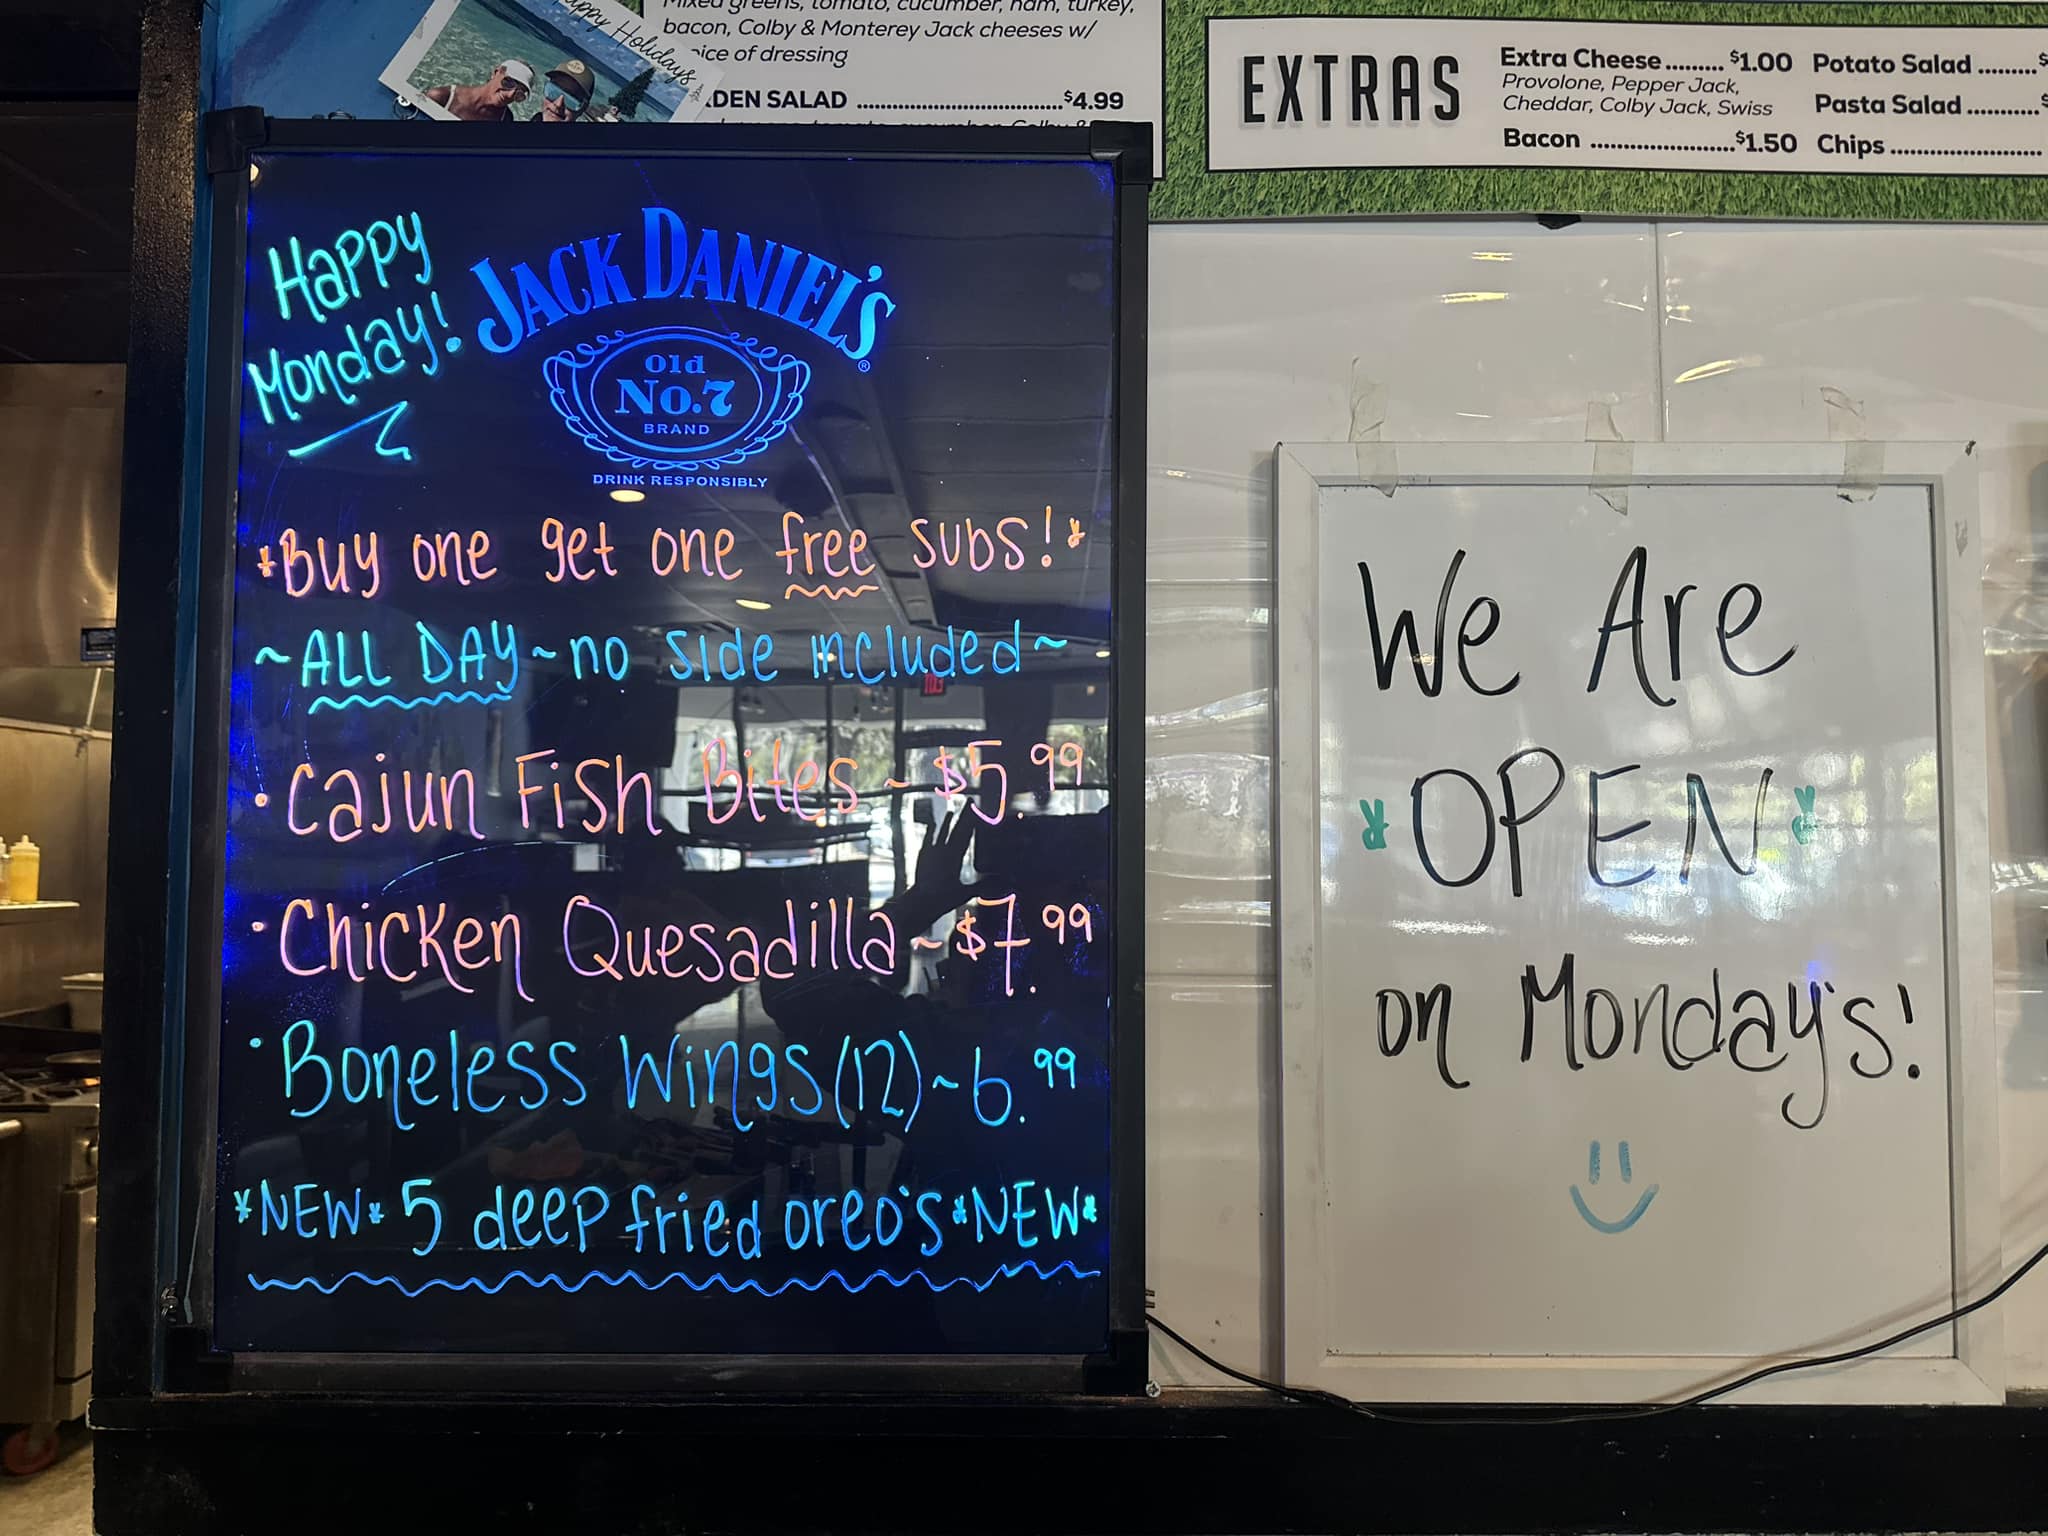 Happy Holidays
Mixed greens, tomato, cucumber, ham, turkey,
bacon, Colby & Monterey Jack cheeses w/
of dressing
SALAD $4.99
EXTRAS
Extra Cheese ......... $1.00
Provolone, Pepper Jack,
Cheddar, Colby Jack, Swiss
Bacon ....................... $1.50
Potato Salad .........$
Pasta Salad ...........$
Chips ...........................
Happy
Monday!
JACK DANIEL'S
®
Old
No.7
BRAND
DRINK RESPONSIBLY
*Buy one get one free subs!*
~ALL DAY~no side included~
·Cajun Fish Bites~$5.99
·Chicken Quesadilla~$7.99
·Boneless Wings(12)~6.99
*NEW* 5 deep fried oreo's *NEW*
We Are
*OPEN*
on Monday's!